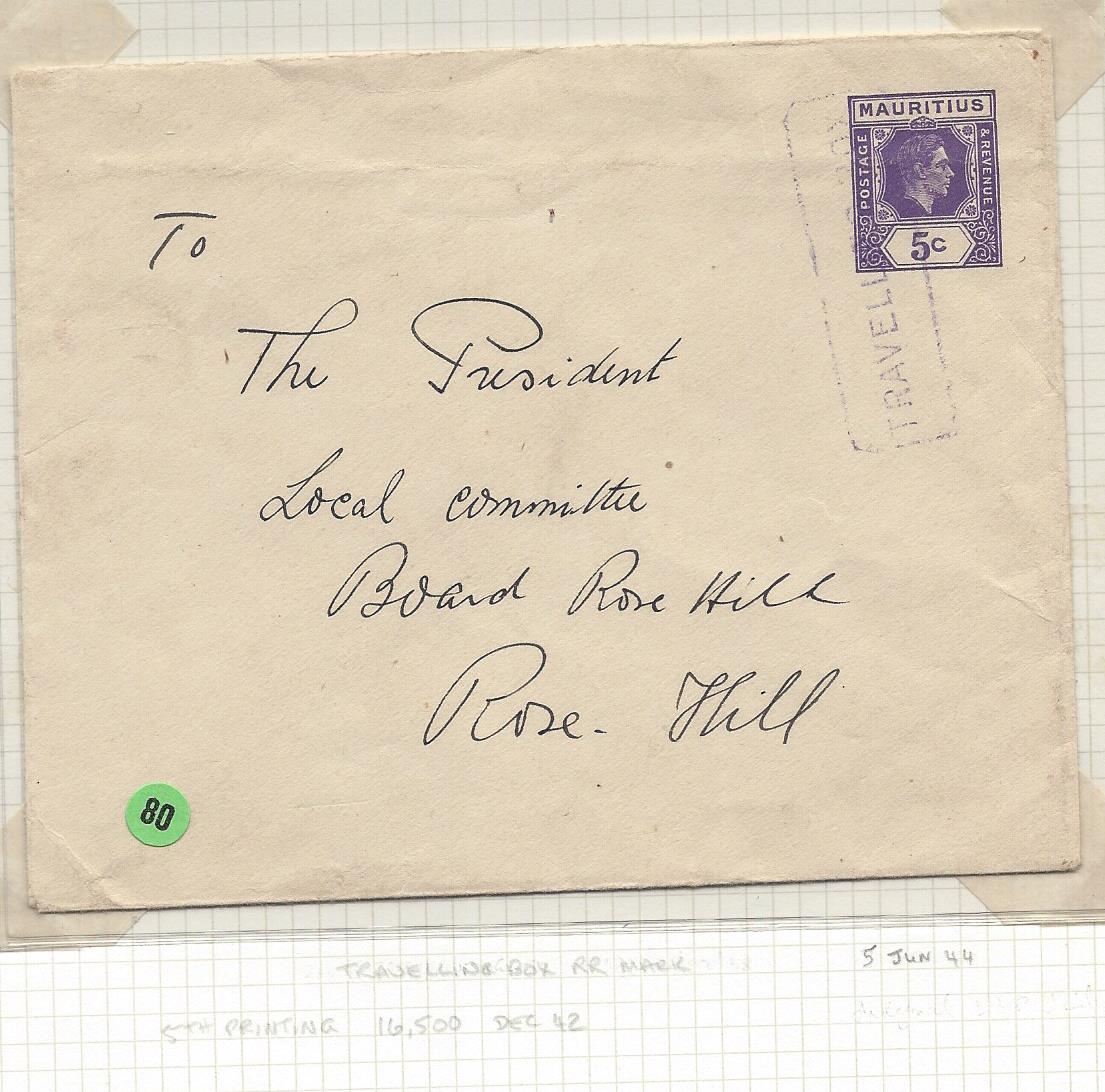 MAURITIUS
POSTAGE
& REVENUE
5c
TRAVELL
To
The President
Local committee
Board Rose Hill
Rose-Hill
80
TRAVELLING BOX RR MARK
5 JUN 44
5TH PRINTING 16,500 DEC 42